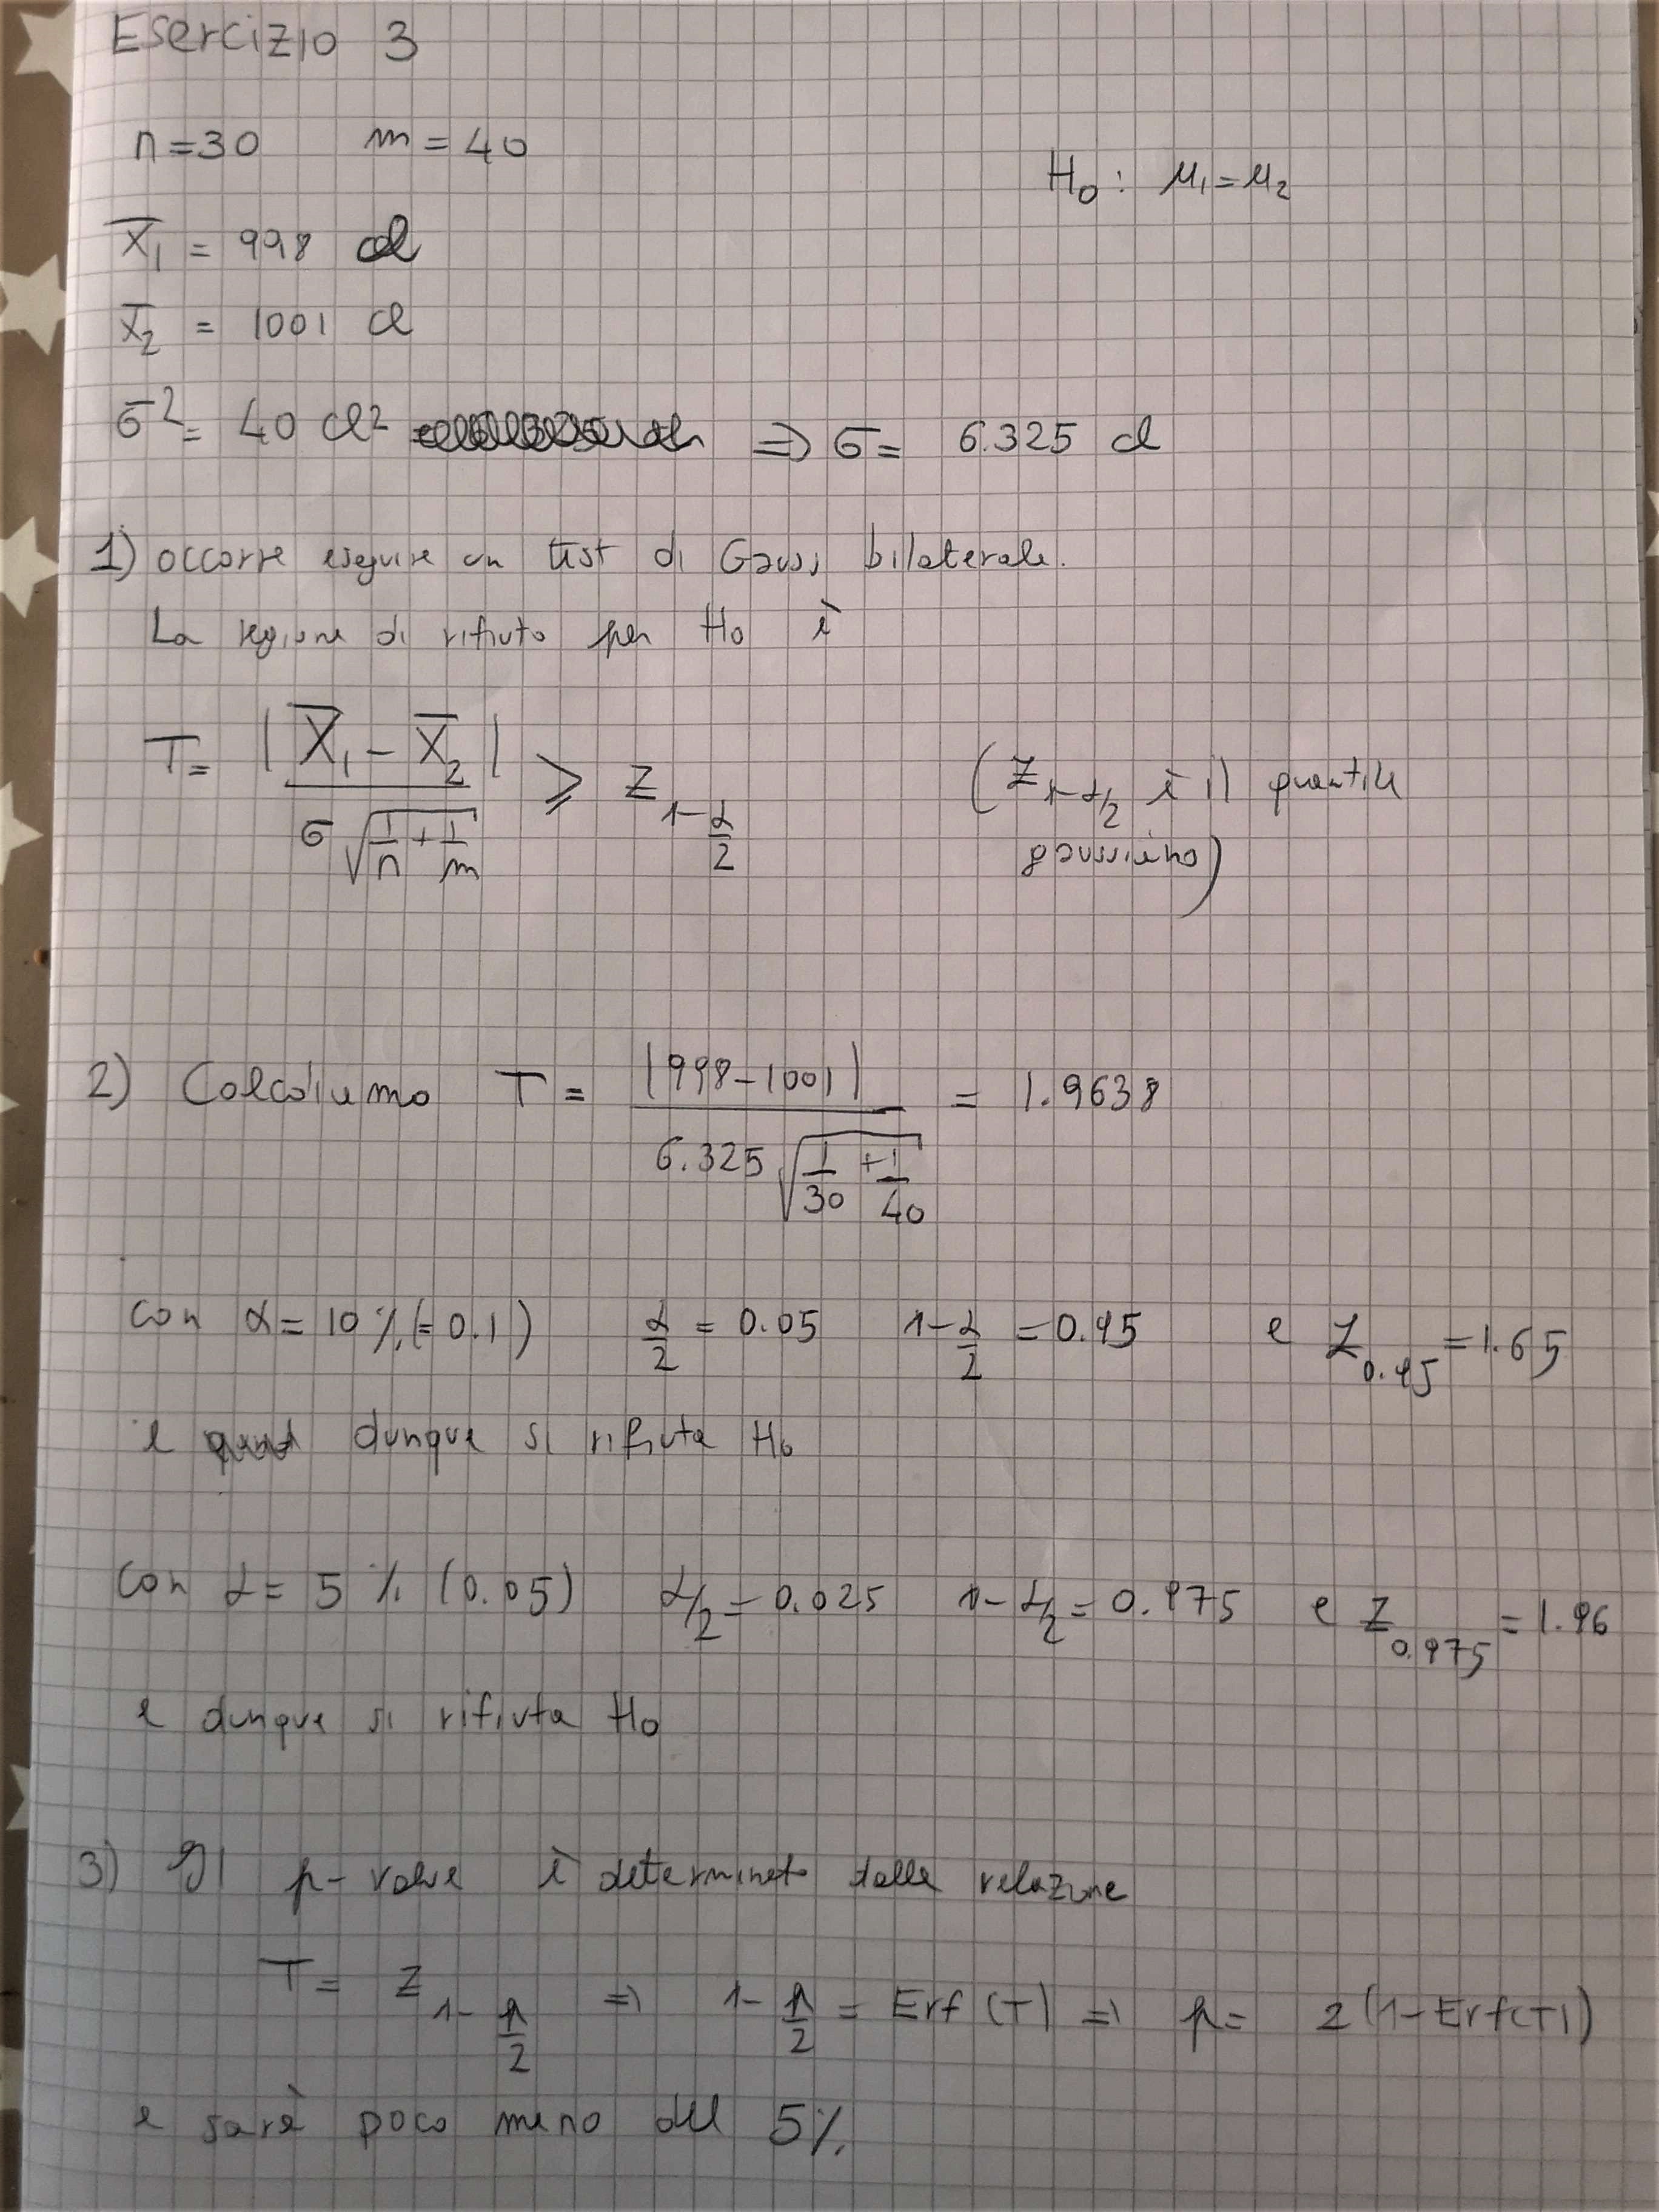 Esercizio 3
n=30 m=40
H₀: μ₁=μ₂
X̄₁ = 998 cl
X̄₂ = 1001 cl
σ² = 40 cl² => σ = 6.325 cl
1) occorre eseguire un test di Gauss bilaterale.
La regione di rifiuto per H₀ è
T = |X̄₁ - X̄₂| / (σ √(1/n + 1/m)) ⩾ z_{1-α/2} (z_{1-α/2} è il quantile
gaussiano)
2) Calcoliamo T = |998-1001| / (6.325 √(1/30 + 1/40)) = 1.9638
con α = 10% (=0.1) α/2 = 0.05 1-α/2 = 0.95 e z_{0.95} = 1.65
e dunque si rifiuta H₀
con α = 5% (0.05) α/2 = 0.025 1-α/2 = 0.975 e z_{0.975} = 1.96
e dunque si rifiuta H₀
3) Il p-value è determinato dalla relazione
T = z_{1-p/2} => 1-p/2 = Erf(T) => p = 2(1-Erf(T))
e sarà poco meno del 5%.